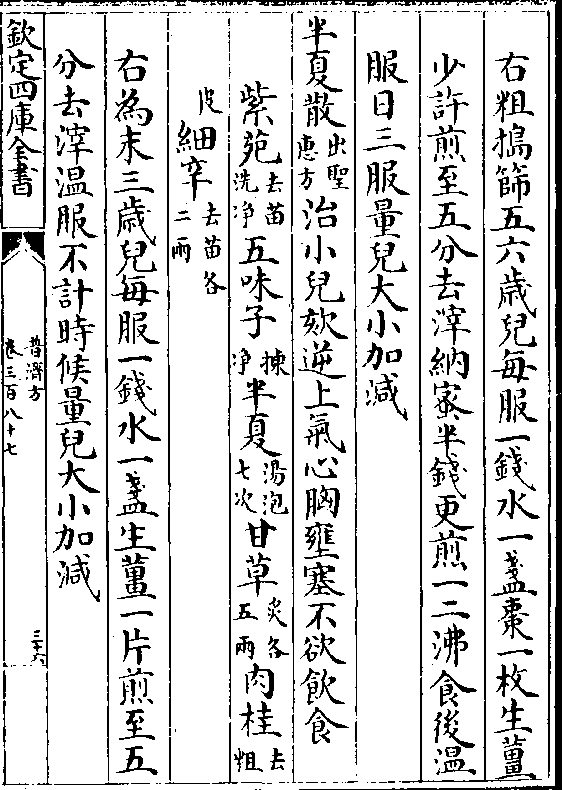 右粗搗篩五六歲兒每服一錢水一盞棗一枚生薑
少許煎至五分去滓納蜜半錢更煎一二沸食後溫
服日三服量兒大小加減
半夏散出聖惠方治小兒欬逆上氣心胸壅塞不欲飲食
紫苑去苗洗净五味子揀净半夏湯泡七次甘草炙各五兩肉桂去粗
皮細辛去苗各二兩
右為末三歲兒每服一錢水一盞生薑一片煎至五
分去滓溫服不計時候量兒大小加減
欽定四庫全書
普濟方
卷三百八十七
三十六